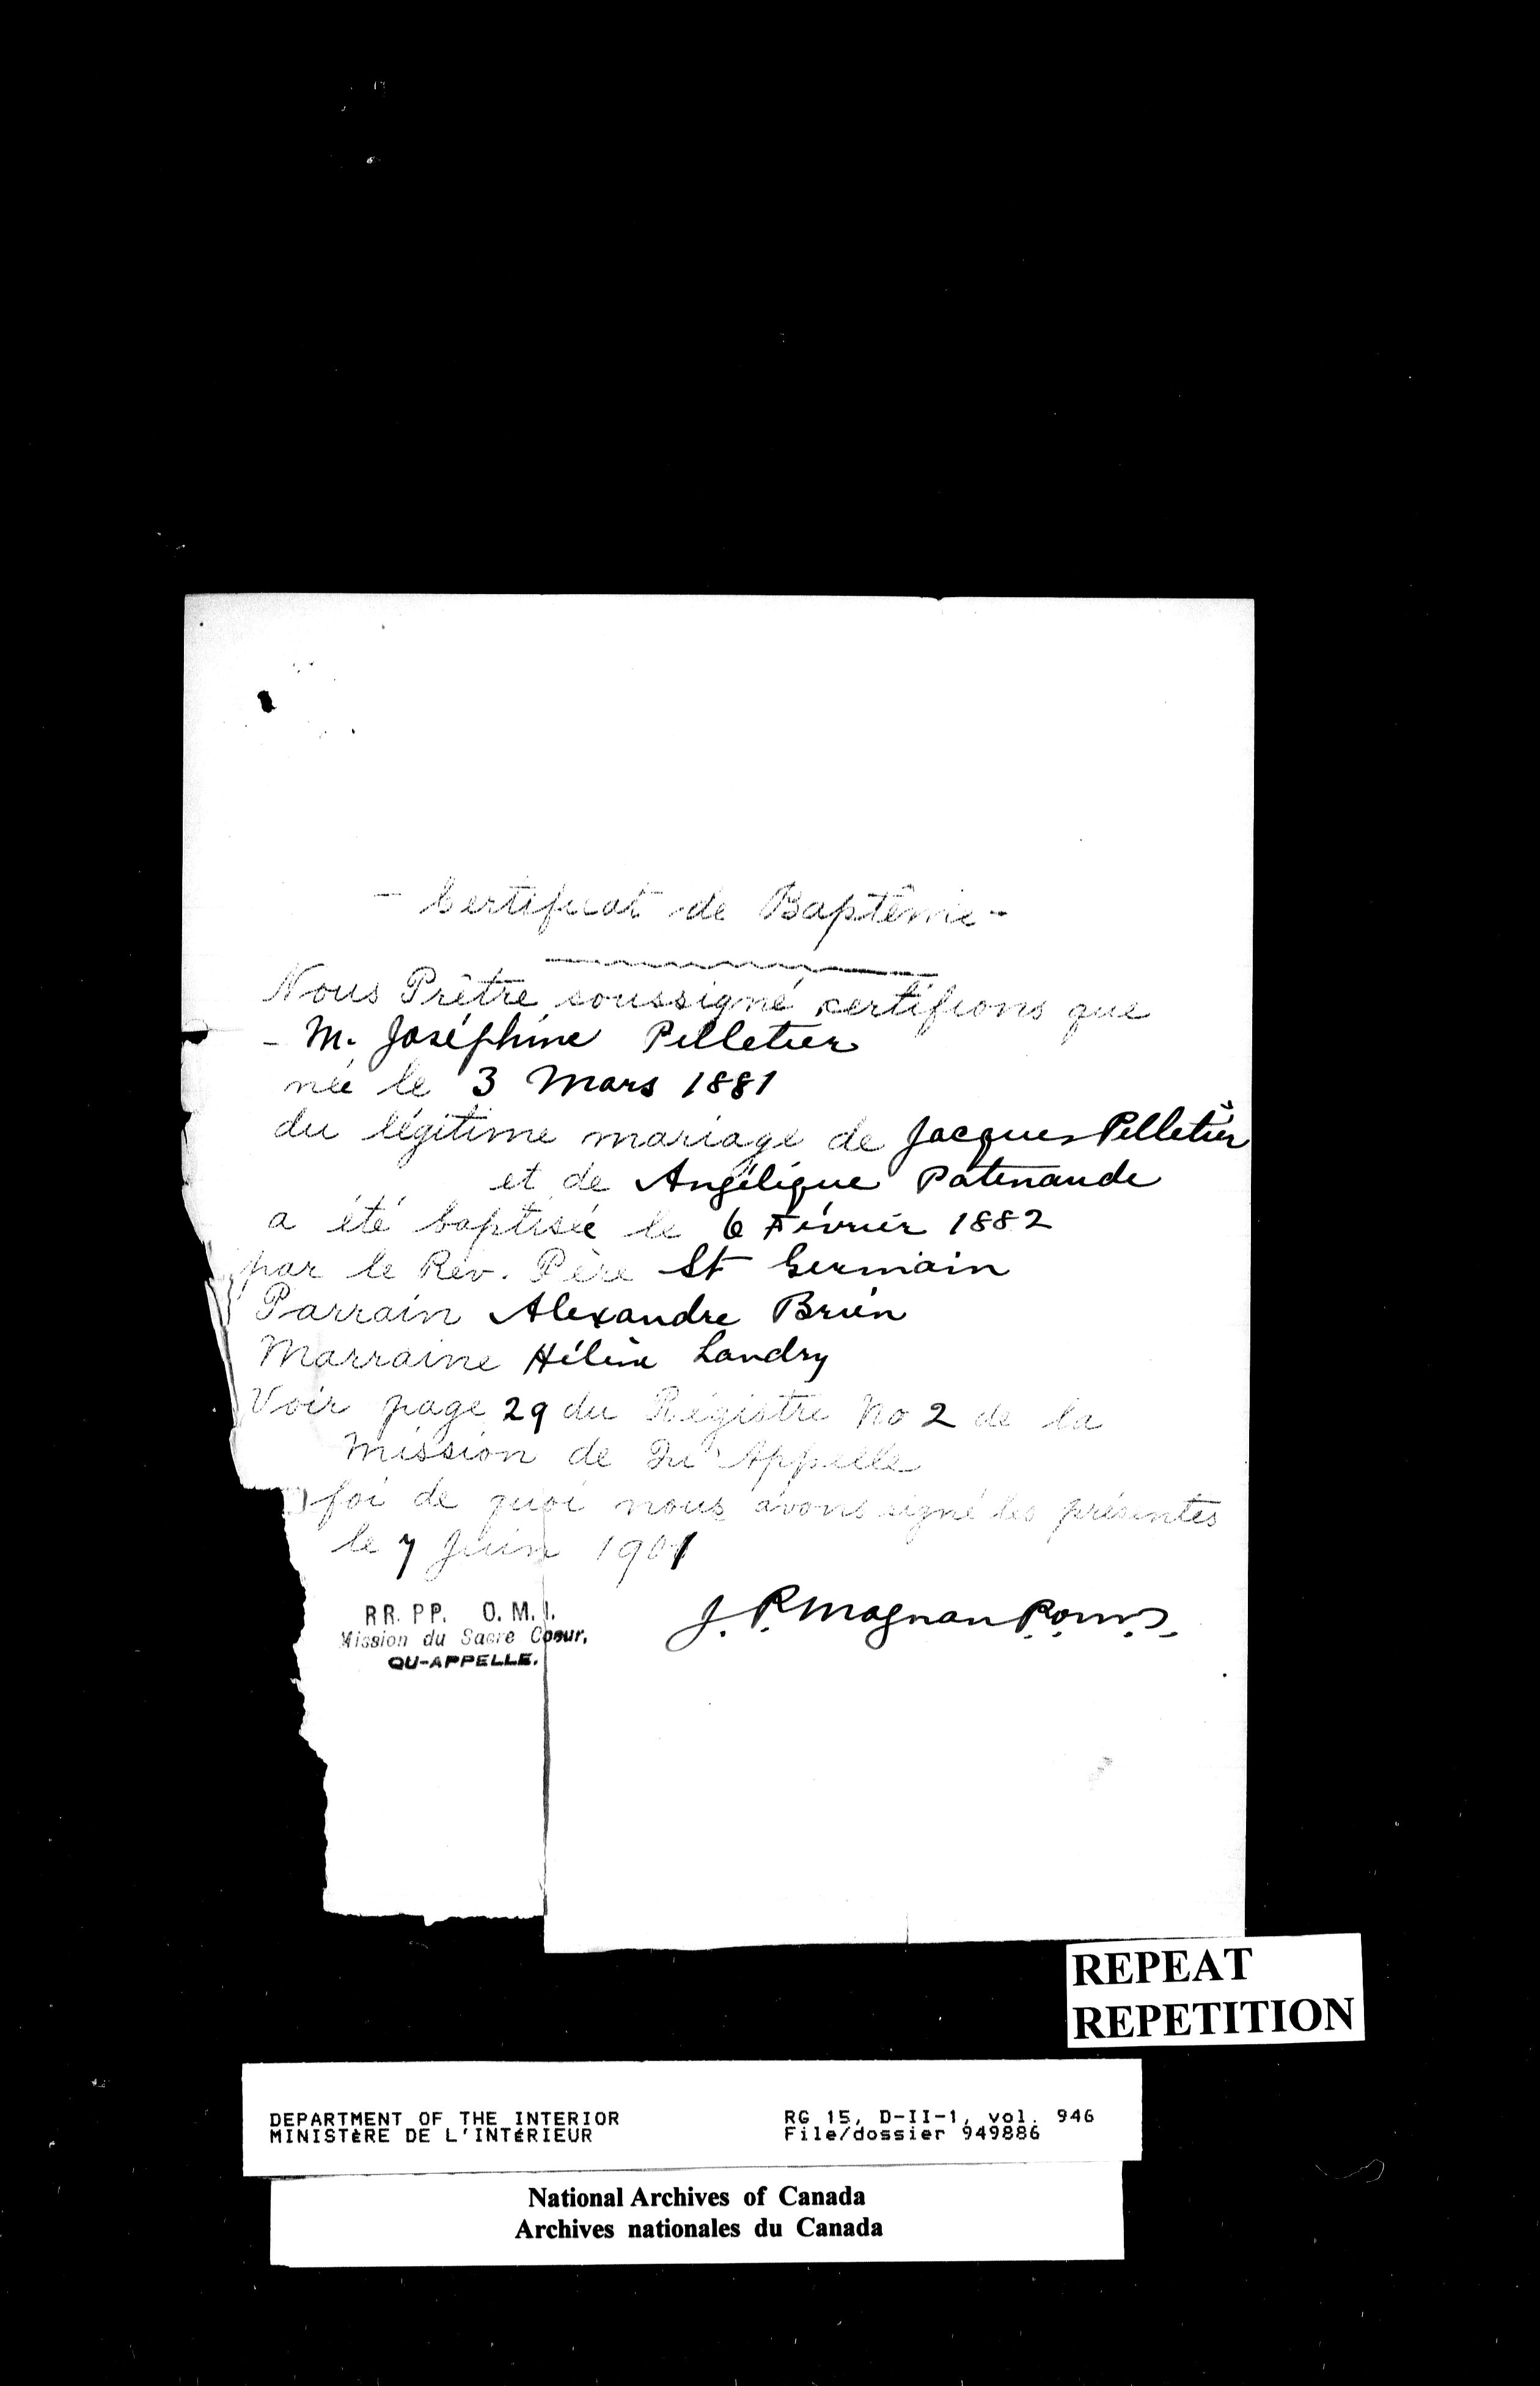 - Certificat de Baptême -
Nous Prêtre soussigné certifions que
- M. Joséphine Pelletier
née le 3 Mars 1881
du légitime mariage de Jacques Pelletier
et de Angélique Patenaude
a été baptisée le 6 Février 1882
par le Rév. Père St Germain
Parrain Alexandre Brien
Marraine Hélène Landry
Voir page 29 du Régistre No 2 de la
Mission de Qu'Appelle
foi de quoi nous avons signé les présentes
le 7 Juin 1901
J. P. Magnan P. o. m. i.
RR. PP. O. M. I.
Mission du Sacre Coeur,
QU-APPELLE.
REPEAT
REPETITION
DEPARTMENT OF THE INTERIOR RG 15, D-II-1, vol. 946
MINISTÈRE DE L'INTÉRIEUR File/dossier 949886
National Archives of Canada
Archives nationales du Canada